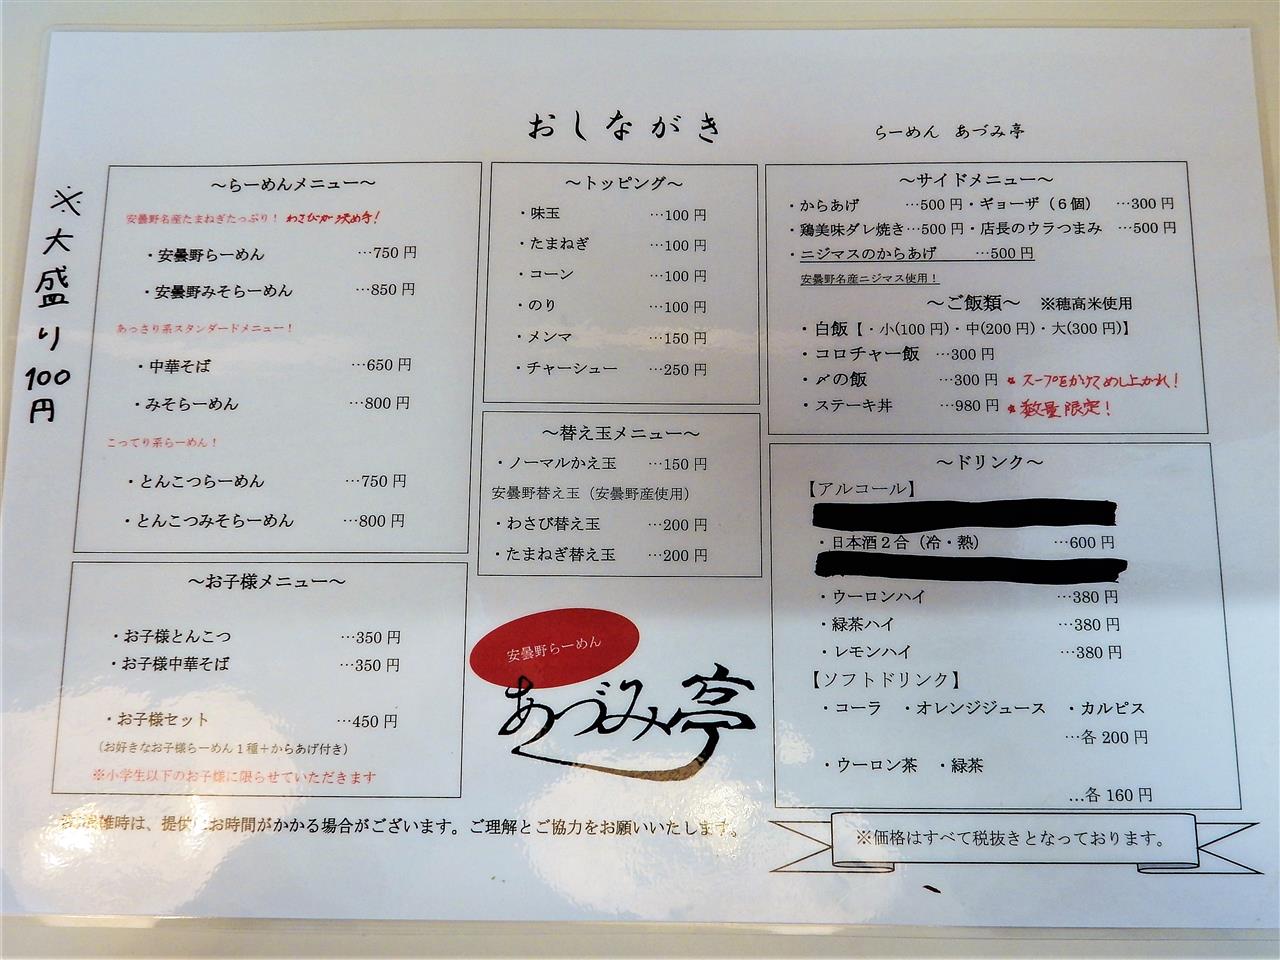 おしながき
らーめん あづみ亭
※大盛り100円
～らーめんメニュー～
安曇野名産たまねぎたっぷり！ わさびが決め手！
・安曇野らーめん …750円
・安曇野みそらーめん …850円
あっさり系スタンダードメニュー！
・中華そば …650円
・みそらーめん …800円
こってり系らーめん！
・とんこつらーめん …750円
・とんこつみそらーめん …800円
～お子様メニュー～
・お子様とんこつ …350円
・お子様中華そば …350円
・お子様セット …450円
（お好きなお子様らーめん１種＋からあげ付き）
※小学生以下のお子様に限らせていただきます
～トッピング～
・味玉 …100円
・たまねぎ …100円
・コーン …100円
・のり …100円
・メンマ …150円
・チャーシュー …250円
～替え玉メニュー～
・ノーマルかえ玉 …150円
安曇野替え玉（安曇野産使用）
・わさび替え玉 …200円
・たまねぎ替え玉 …200円
安曇野らーめん
あづみ亭
～サイドメニュー～
・からあげ …500円・ギョーザ（６個） …300円
・鶏美味ダレ焼き…500円・店長のウラつまみ …500円
・ニジマスのからあげ …500円
安曇野名産ニジマス使用！
～ご飯類～ ※穂高米使用
・白飯【・小(100円)・中(200円)・大(300円)】
・コロチャー飯 …300円
・〆の飯 …300円 ★スープをかけてめし上がれ！
・ステーキ丼 …980円 ★数量限定！
～ドリンク～
【アルコール】
・日本酒２合（冷・熱） …600円
・ウーロンハイ …380円
・緑茶ハイ …380円
・レモンハイ …380円
【ソフトドリンク】
・コーラ ・オレンジジュース ・カルピス
…各200円
・ウーロン茶 ・緑茶
…各160円
雑時は、提供にお時間がかかる場合がございます。ご理解とご協力をお願いいたします。
※価格はすべて税抜きとなっております。